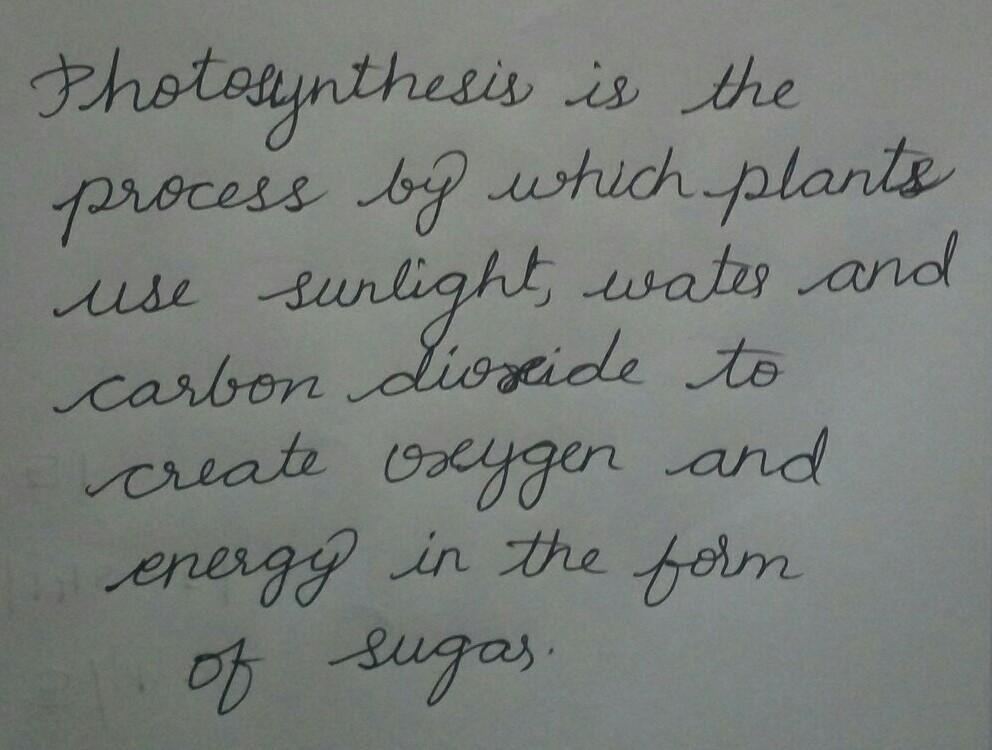 Photosynthesis is the
process by which plants
use sunlight, water and
carbon dioxide to
create oxygen and
energy in the form
of sugar.